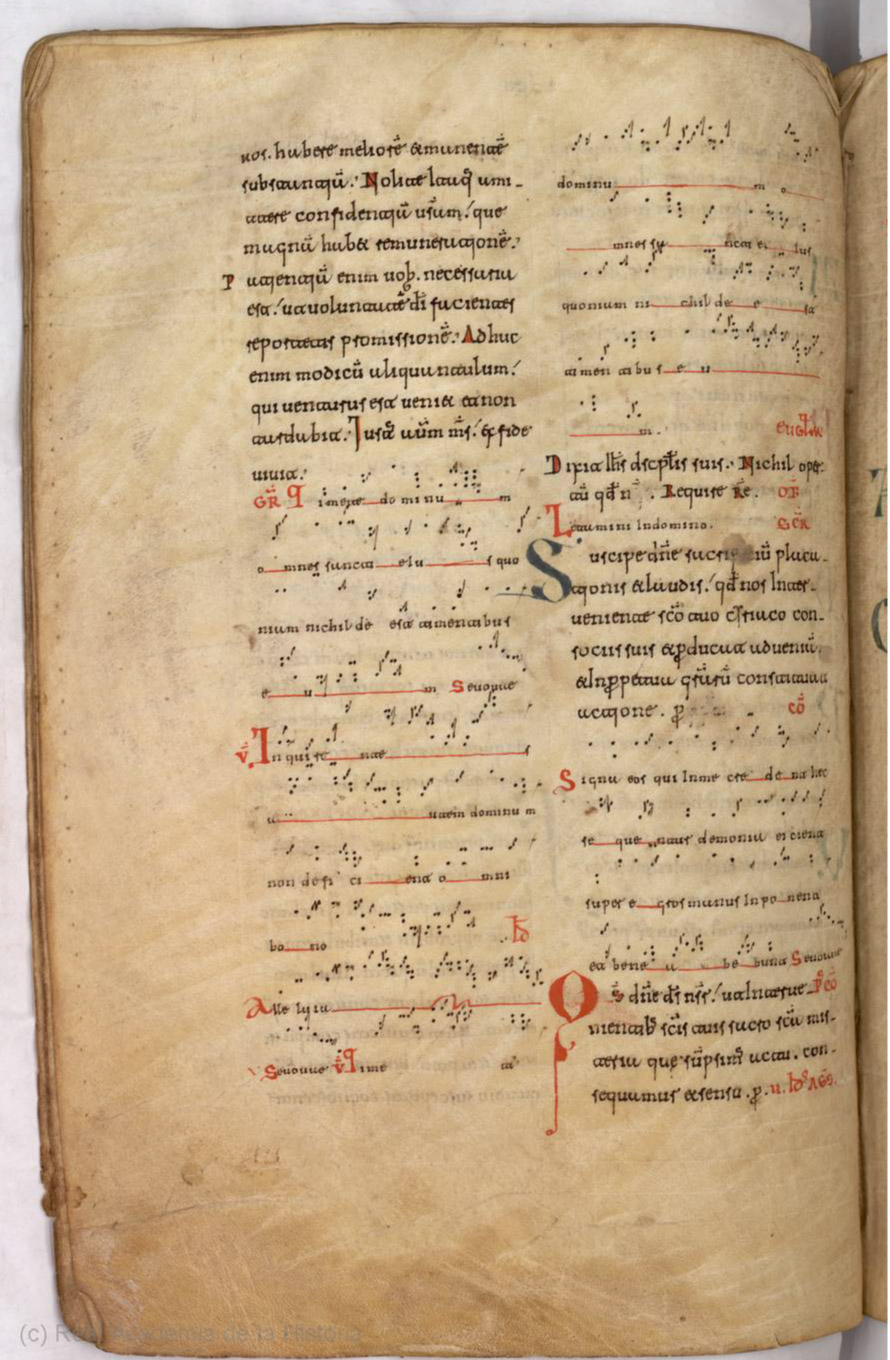 uos. habere meliorē & manentē
substantiā. Nolite itaq; ami-
ttere confidentiā urām. que
magnā habet remunerationē.
Patientia enim uob. necessaria
est. ut uoluntatē di facientes
reportetis promissionē. Adhuc
enim modicū aliquantulum.
qui uenturus est ueniet et non
tardabit. Iust aūm ms. ex fide
uiuit.
GR Timete dominum
omnes sancti eius quo
nium nichil de est timentibus
eum Seuouae
V Inquirentes
autem dominum
non defici ent omni
bono
Alleluia
Seuouae V Time te
dominum o
mnes sancti eius
quoniam nichil de e st
timen tibus eu
m. euglm
Dixit ihs discplis suis. Nichil oper
tū qd n . Require Re. OF
Letamini In domino. SCR
Suscipe dne sacri iū placa-
tionis & laudis. qd nos Inter-
ueniente sco tuo civiaco con-
sociis suis & pducat ad ueniā.
& In ppetua grārū constituat
actione. p co
Signa eos qui In me cre dent hec
se quentur demonia eicient
super e gros manus Inponent
et bene habebunt Seuouae
Os dne ds nr. ut Interue pco
nientib scis tuis sacro scā mis-
teria que sūpsim actu. con-
sequamus & sensu. p.
(c) Real Academia de la Historia